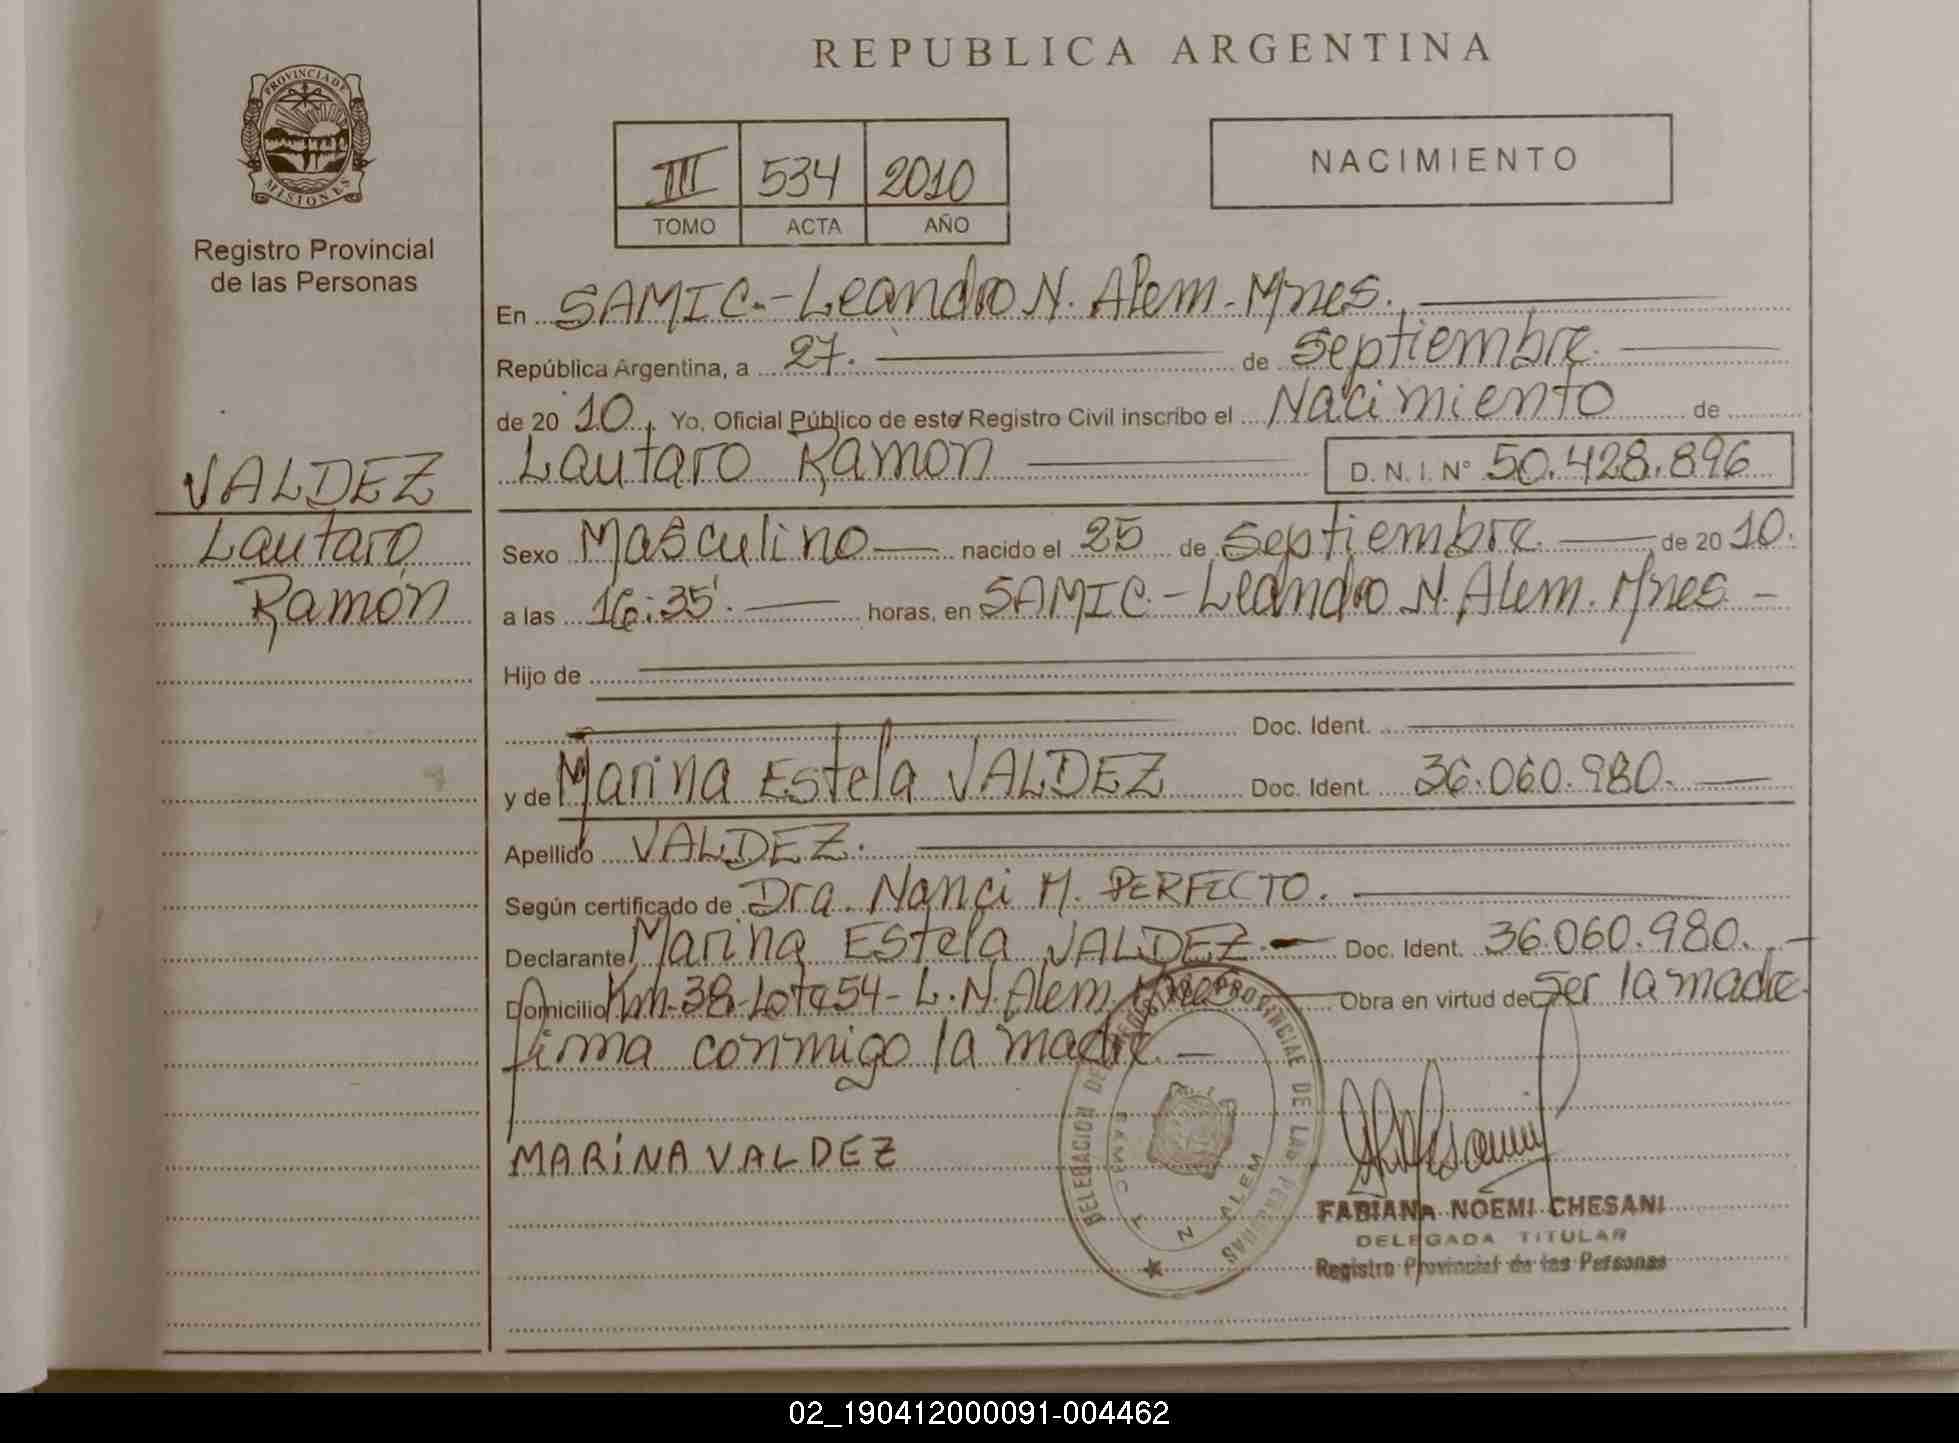 REPUBLICA ARGENTINA
PROVINCIA DE
MISIONES
Registro Provincial
de las Personas
III 534 2010
TOMO ACTA AÑO
NACIMIENTO
En SAMIC.-Leandro N. Alem-Mnes.
República Argentina, a 27. de Septiembre.
de 20 10. Yo, Oficial Público de este Registro Civil inscribo el Nacimiento de
VALDEZ
Lautaro
Ramón
Lautaro Ramon D. N. I. N° 50.428.896
Sexo Masculino nacido el 25 de Septiembre. de 20 10.
a las 16:35'. horas, en SAMIC.-Leandro N. Alem. Mnes. -
Hijo de
Doc. Ident.
y de Marina Estela VALDEZ Doc. Ident. 36.060.980.
Apellido VALDEZ.
Según certificado de Dra. Nanci M. PERFECTO.
Declarante Marina Estela VALDEZ.- Doc. Ident. 36.060.980. -
Domicilio Km-38-Lote 54- L.N. Alem. Mnes Obra en virtud de Ser la madre.
firma conmigo la madre. -
MARiNA VALDEZ
DELEGACION DEL REGISTRO PROVINCIAL DE LAS PERSONAS
SAMIC L N ALEM
FABIANA NOEMI CHESANI
DELEGADA TITULAR
Registro Provincial de las Personas
02_190412000091-004462